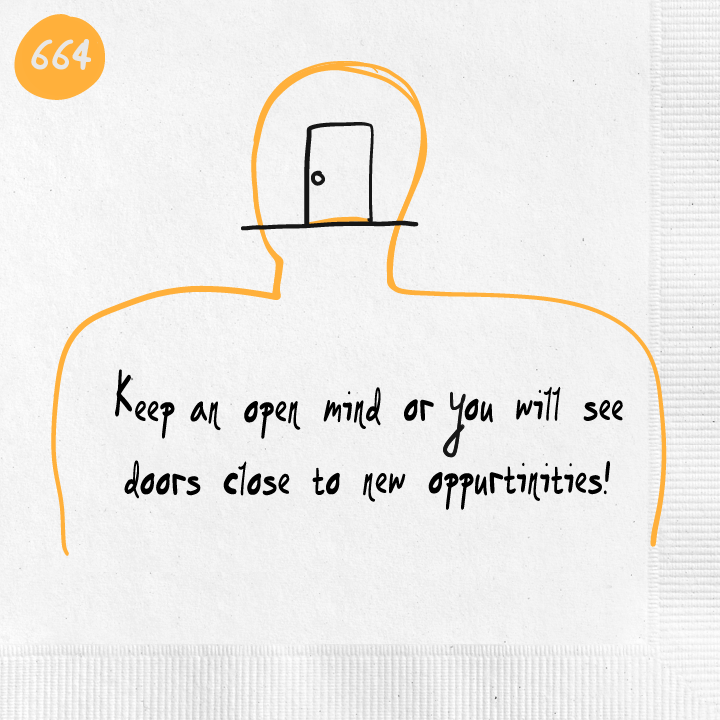 664
Keep an open mind or you will see
doors close to new oppurtinities!